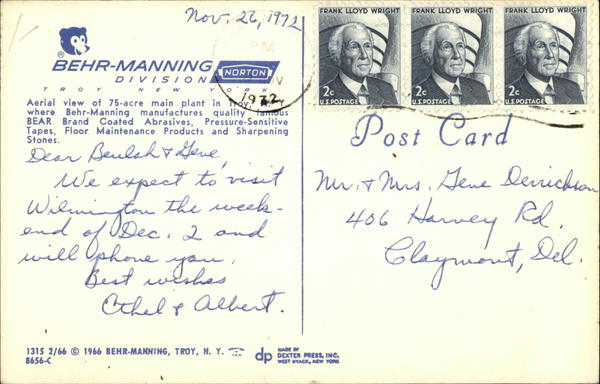 Nov. 26, 1972
BEHR-MANNING
DIVISION
NORTON
TROY NEW YORK
Aerial view of 75-acre main plant in Troy, N.Y.
where Behr-Manning manufactures quality famous
BEAR Brand Coated Abrasives, Pressure-Sensitive
Tapes, Floor Maintenance Products and Sharpening
Stones.
PM
1972
FRANK LLOYD WRIGHT
2c
U.S. POSTAGE
FRANK LLOYD WRIGHT
2c
U.S. POSTAGE
FRANK LLOYD WRIGHT
2c
U.S. POSTAGE
Post Card
Dear Beulah & Gene,
We expect to visit
Wilmington the week-
end of Dec. 2 and
will phone you.
Best wishes
Ethel & Albert.
Mr. & Mrs. Gene Derrickson
406 Harvey Rd.
Claymont, Del.
1315 2/66 © 1966 BEHR-MANNING, TROY, N. Y.
8656-C
dp
MADE BY
DEXTER PRESS, INC.
WEST NYACK, NEW YORK